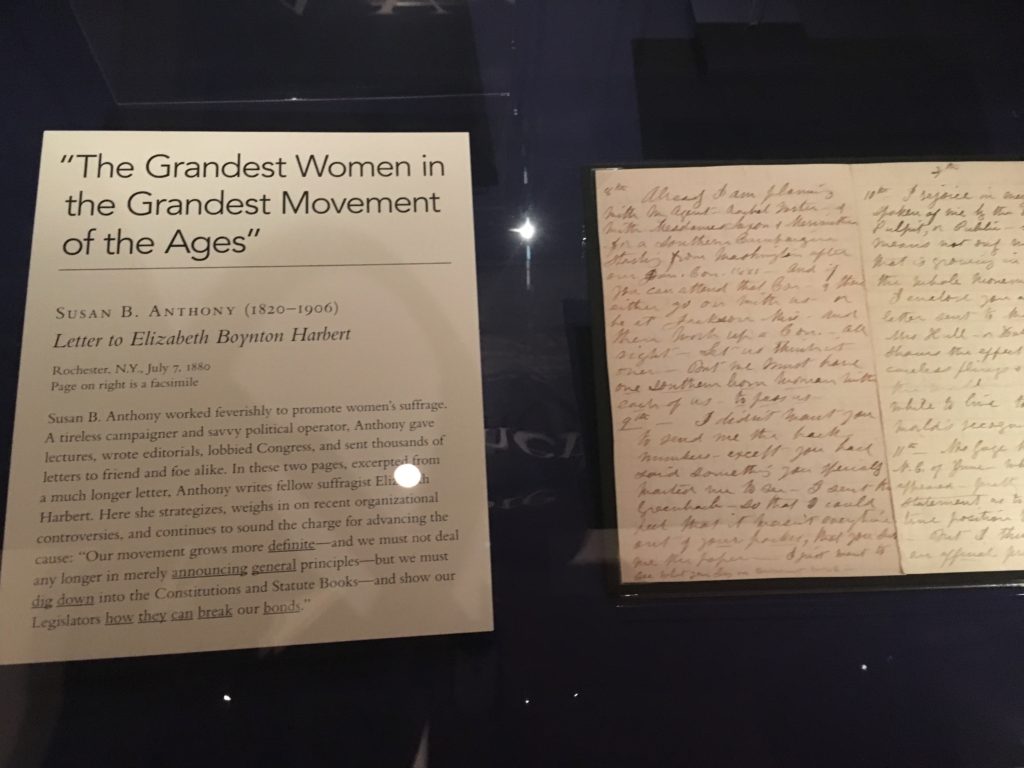 “The Grandest Women in
the Grandest Movement
of the Ages”
SUSAN B. ANTHONY (1820–1906)
Letter to Elizabeth Boynton Harbert
Rochester, N.Y., July 7, 1880
Page on right is a facsimile
Susan B. Anthony worked feverishly to promote women's suffrage.
A tireless campaigner and savvy political operator, Anthony gave
lectures, wrote editorials, lobbied Congress, and sent thousands of
letters to friend and foe alike. In these two pages, excerpted from
a much longer letter, Anthony writes fellow suffragist Elizabeth
Harbert. Here she strategizes, weighs in on recent organizational
controversies, and continues to sound the charge for advancing the
cause: “Our movement grows more definite—and we must not deal
any longer in merely announcing general principles—but we must
dig down into the Constitutions and Statute Books—and show our
Legislators how they can break our bonds.”
8th Already I am planning
with my Agent
with Mesdames &
for a Southern Campaign
starting from Washington after
our Con. 1881 — And if
you can attend that Con —
either go on with us — or
be at Miss — And
there work up a Con. — All
right — Let us think it
over — But we must have
one Southern born woman with
each of us — to pass us —
9th — I didn't want you
to send me the back
numbers — except you had
said something you specially
wanted me to see — I sent the
Greenback — so that I could
feel that it wasn't everything
out of your pocket, that you send
me the paper — I just want to
10th I rejoice in
spoken of me by the
Pulpit, or Public —
means not only
that is growing in
the whole
I enclose you a
letter sent to
Mrs Hill
Shows the effect
careless flings
while to live to
world's
11th Mrs Gage
N.C. of June
appeared
statement as to
position
But I
an official